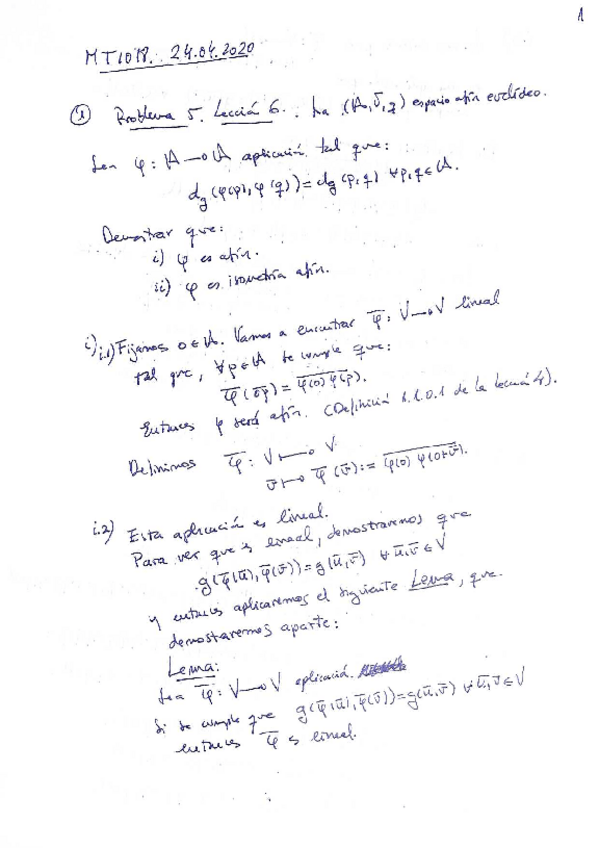 1
MT1018. 24.04.2020
① Problema 5. Lección 6. Sea (𝔸, V̄, g) espacio afín euclídeo.
Sea φ: 𝔸 → 𝔸 aplicación tal que:
d_g(φ(p), φ(q)) = d_g(p, q) ∀p, q ∈ 𝔸.
Demostrar que:
i) φ es afín.
ii) φ es isometría afín.
i) i.1) Fijamos o ∈ 𝔸. Vamos a encontrar φ̄: V → V lineal
tal que, ∀p ∈ 𝔸 se cumple que:
φ̄(\overline{op}) = \overline{φ(o) φ(p)}.
Entonces φ será afín. (Definición 1.0.1 de la lección 4).
Definimos φ̄: V → V
v̄ ↦ φ̄(v̄) := \overline{φ(o) φ(o+v̄)}.
i.2) Esta aplicación es lineal.
Para ver que es lineal, demostraremos que
g(φ̄(ū), φ̄(v̄)) = g(ū, v̄) ∀ū, v̄ ∈ V
y entonces aplicaremos el siguiente Lema, que
demostraremos aparte:
Lema:
Sea φ̄: V → V aplicación.
Si se cumple que g(φ̄(ū), φ̄(v̄)) = g(ū, v̄) ∀ū, v̄ ∈ V
entonces φ̄ es lineal.